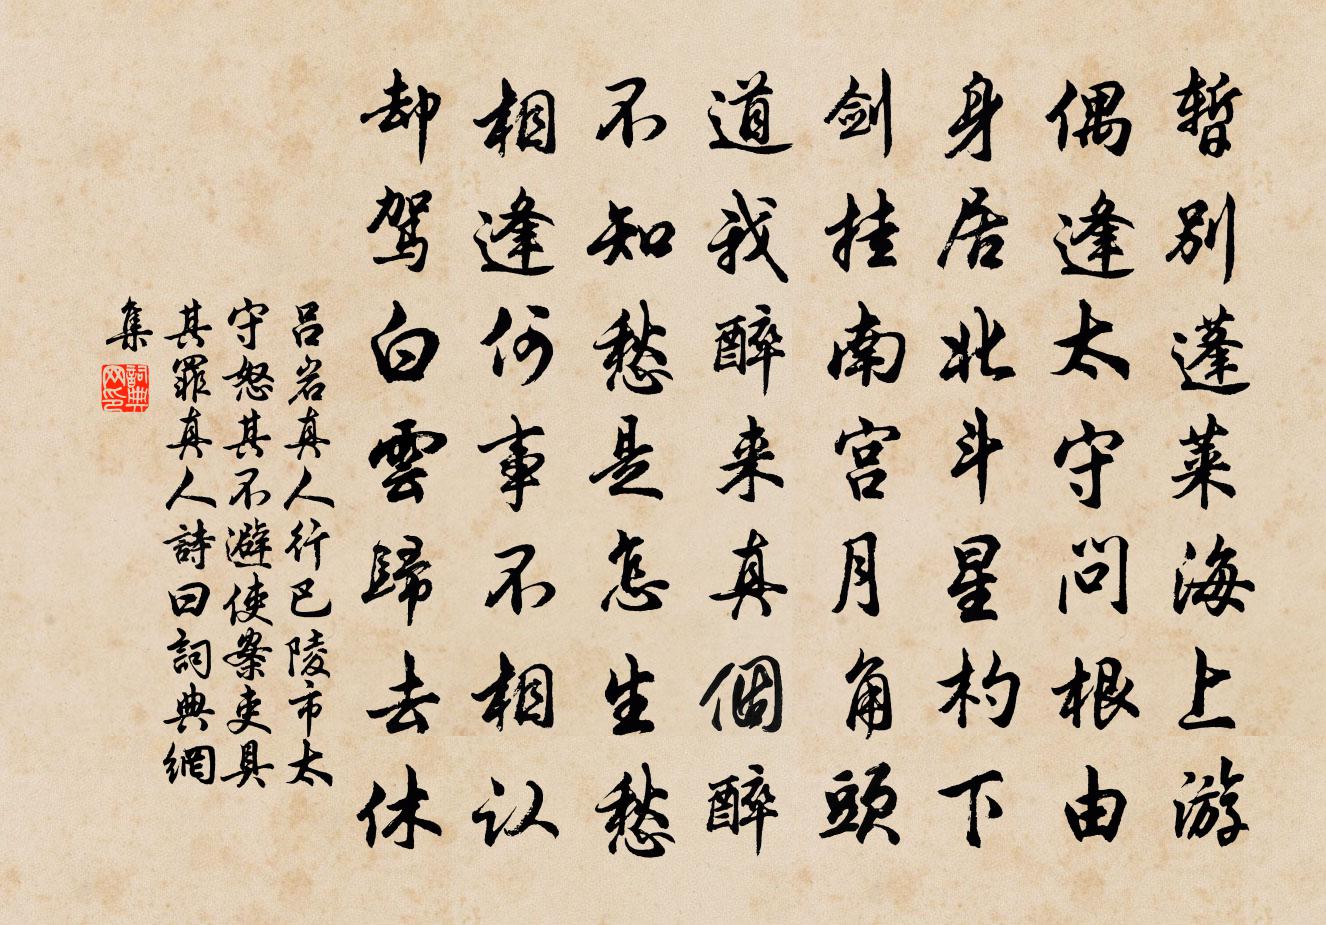 暫別蓬莱海上游
偶逢太守問根由
身居北斗星杓下
剑挂南宫月角頭
道我醉来真個醉
不知愁是怎生愁
相逢何事不相认
却驾白雲歸去休
吕岩真人行巴陵市太
守怒其不避使案吏具
其罪真人詩曰詞典網
集
詞典网印